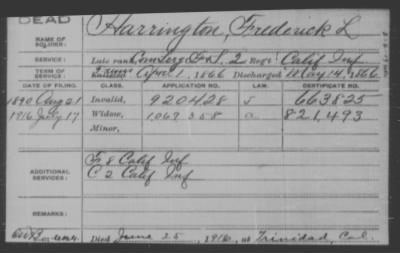 DEAD
NAME OF SOLDIER: Harrington, Frederick L
SERVICE: Late rank Com Serg F&S, 2 Reg't Calif Inf
TERM OF SERVICE: April 1, 1866 Discharged May 14, 1866
DATE OF FILING. CLASS. APPLICATION NO. LAW. CERTIFICATE NO.
1890 Aug 21 Invalid, 920428 663825
1916 July 17 Widow, 1069358 a 821,493
Minor,
ADDITIONAL SERVICES: F 8 Calif Inf
C 2 Calif Inf
REMARKS:
Died June 25, 1916, at Trinidad, Col.